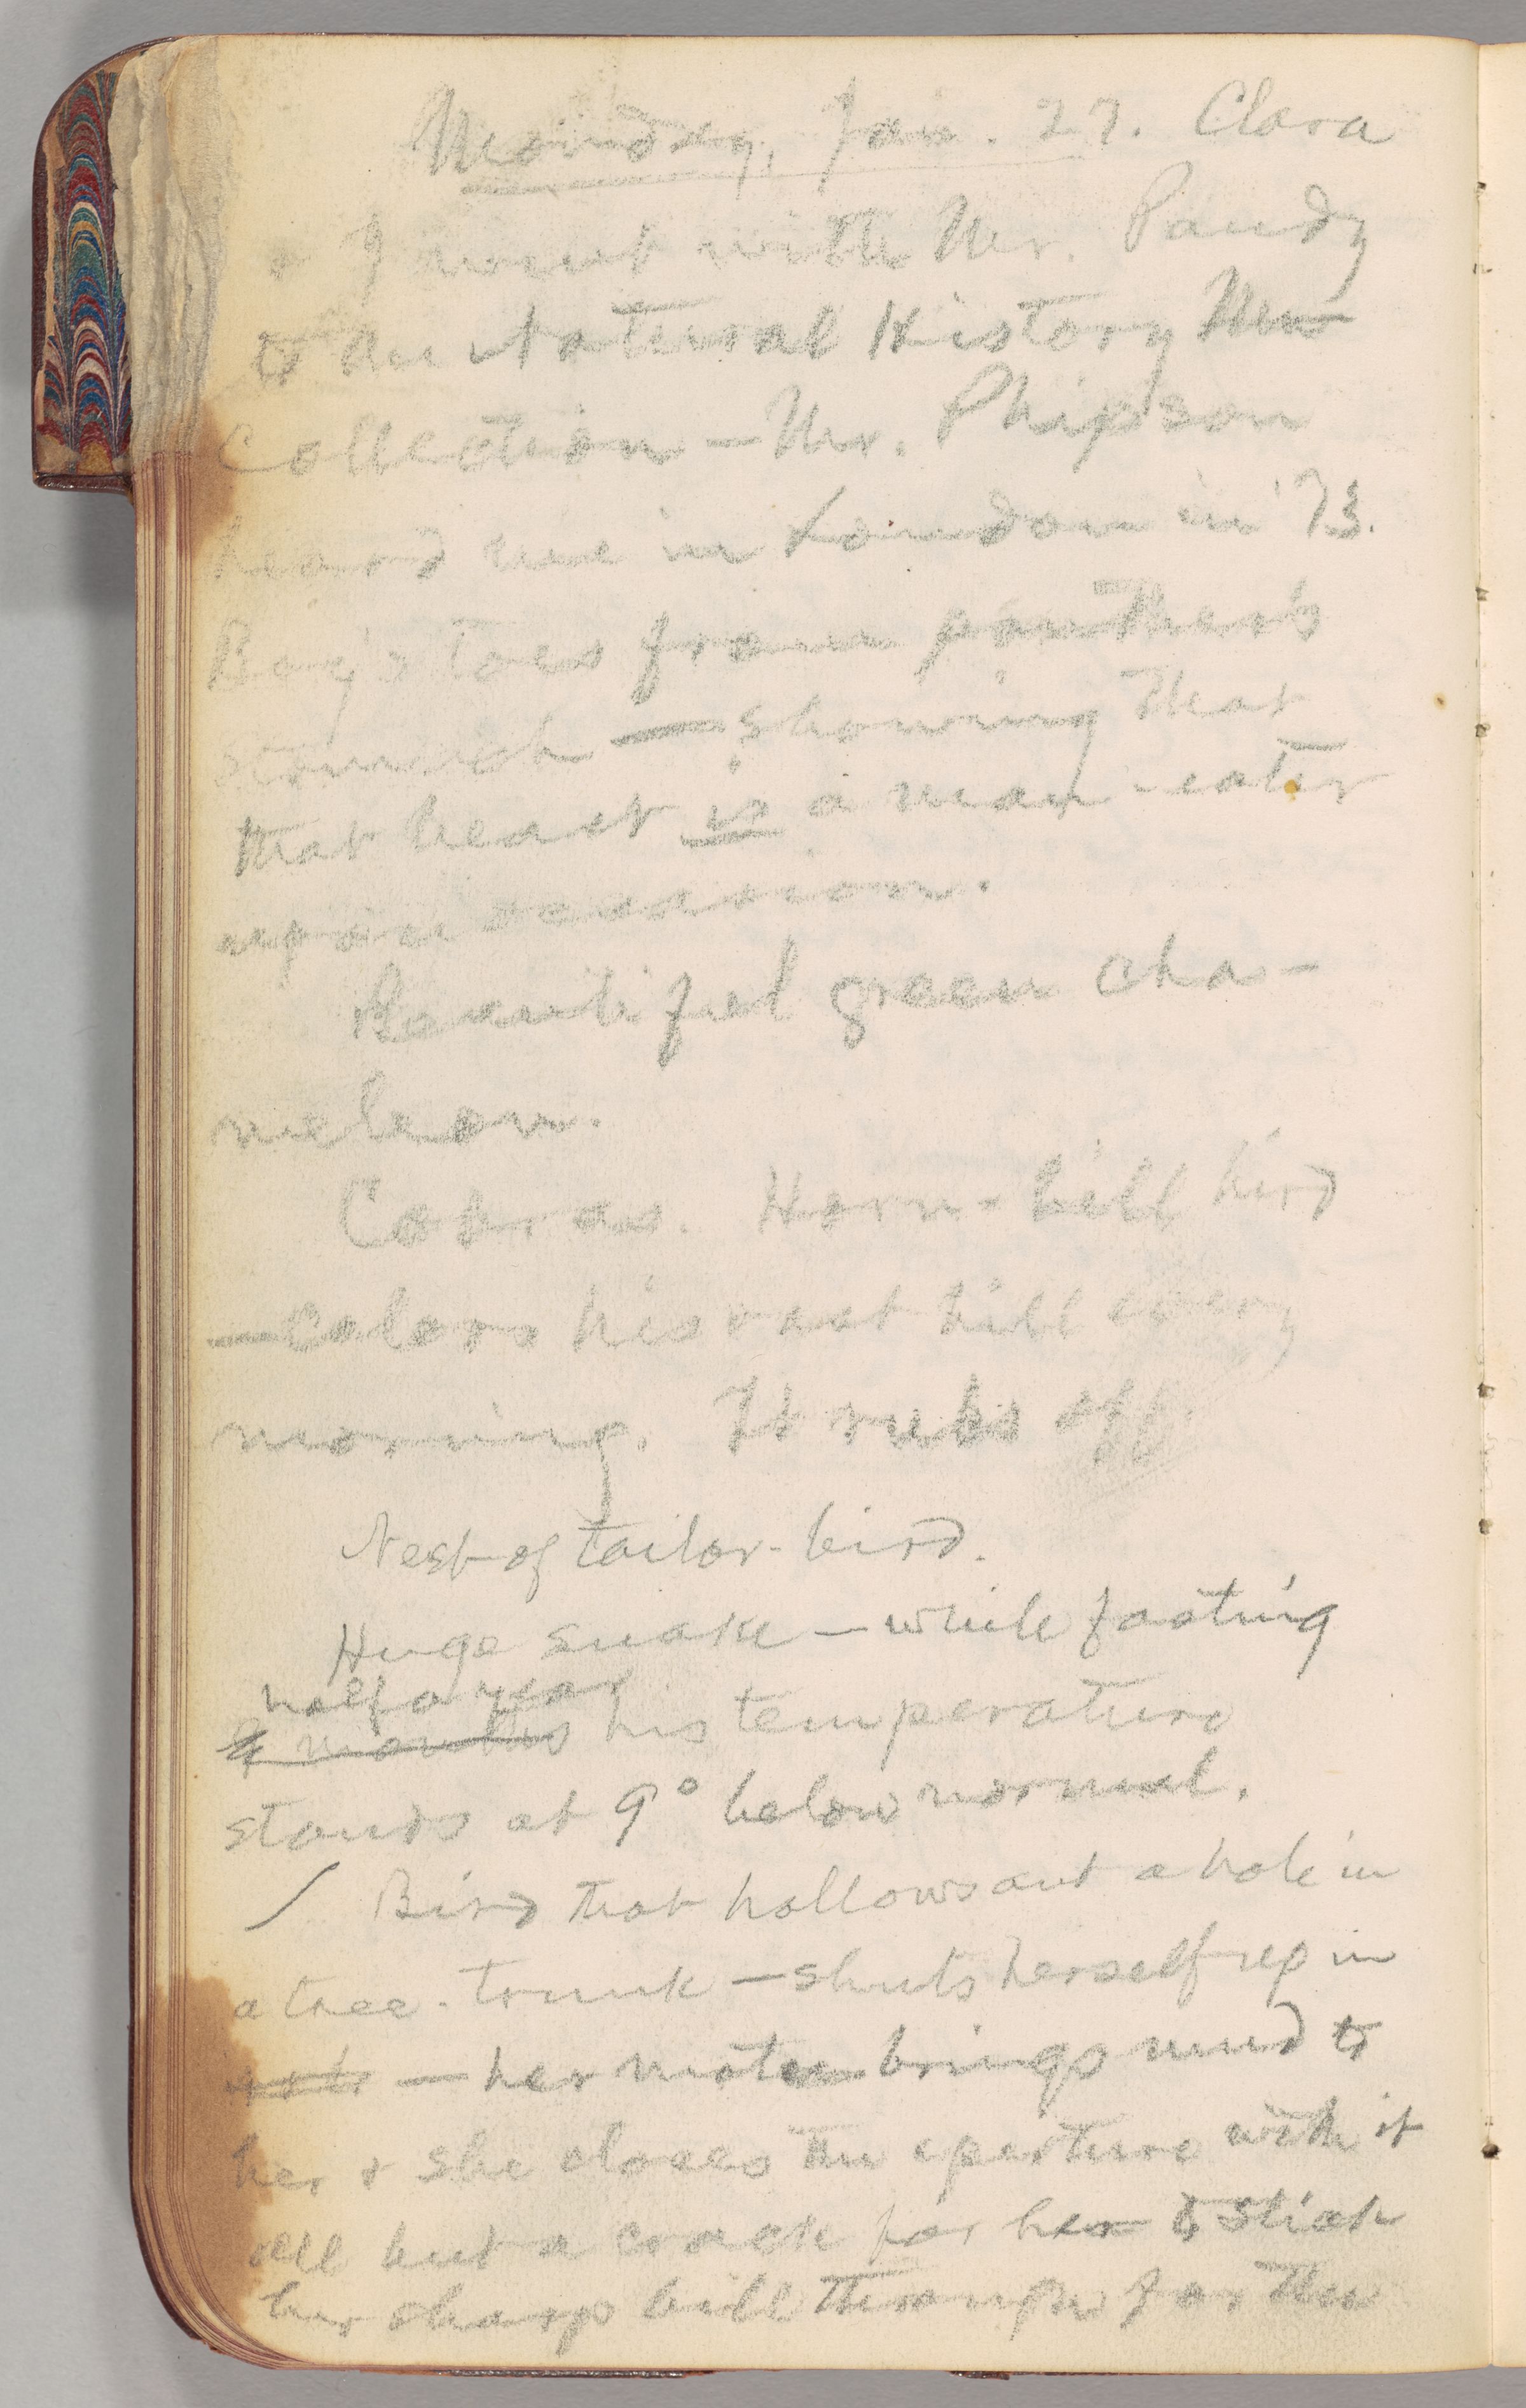 Monday, Jan. 27. Clara
& I went with Mr. Pandy
to the Natural History Mus
Collection — Mr. Phipson
heard me in London in '73.
Boy's toes from panther's
stomach — showing that
that beast is a man-eater
upon occasion.
Beautiful green cha-
meleon.
Cobras. Horn-bill bird
—colors his vast bill every
morning. It rubs off.
Nest of tailor-bird.
Huge snake — while fasting
half a year
months his temperature
stands at 9° below normal.
/ Bird that hollows out a hole in
a tree-trunk — shuts herself up in
— her mate brings mud to
her & she closes the aperture with it
all but a crack for her to stick
her sharp bill through for the